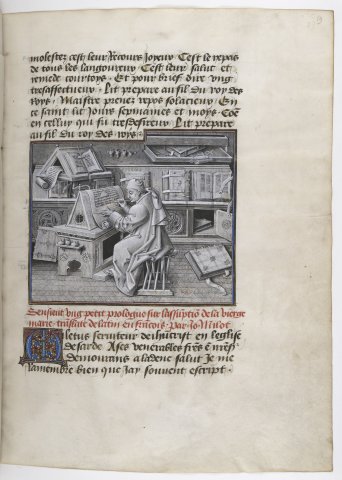 molestez cest leur Recours Joyeux Cest le repas
de tous les langoureux Cest leur salut et
remede courtoys · Et pour brief dire vng
tresaffectueux · Lit prepare au filz du roy des
Roys · Maistre prenez repos solacieux · En
ce saint lit Jours sepmaines et moys · Coe
en celluy qui fu tresdesireux · Lit prepare
au filz du roy des roys ·
Sensuit vng petit prologue sur lassuptio de la vierge
marie trslate de latin en francois · Par Jo Mielot
Mletus seruiteur de ihucrist en leglise
de sarde A ses venerables freres
demourans a ladene salut Je me
ramembre bien que Jay souuent escript ·